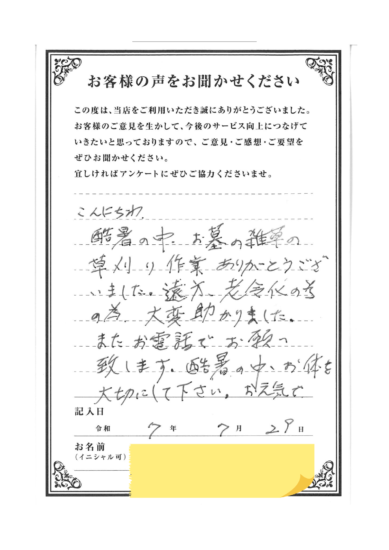 お客様の声をお聞かせください
この度は、当店をご利用いただき誠にありがとうございました。
お客様のご意見を生かして、今後のサービス向上につなげて
いきたいと思っておりますので、ご意見・ご感想・ご要望を
ぜひお聞かせください。
宜しければアンケートにぜひご協力くださいませ。
こんにちわ。
酷暑の中、お墓の雑草の
草刈り作業ありがとうござ
いました。遠方、老令化の為
の為、大変助かりました。
またお電話でお願い
致します。酷暑の中、お体を
大切にして下さい。お元気で
記入日
令和 7 年 7 月 29 日
お名前
(イニシャル可)